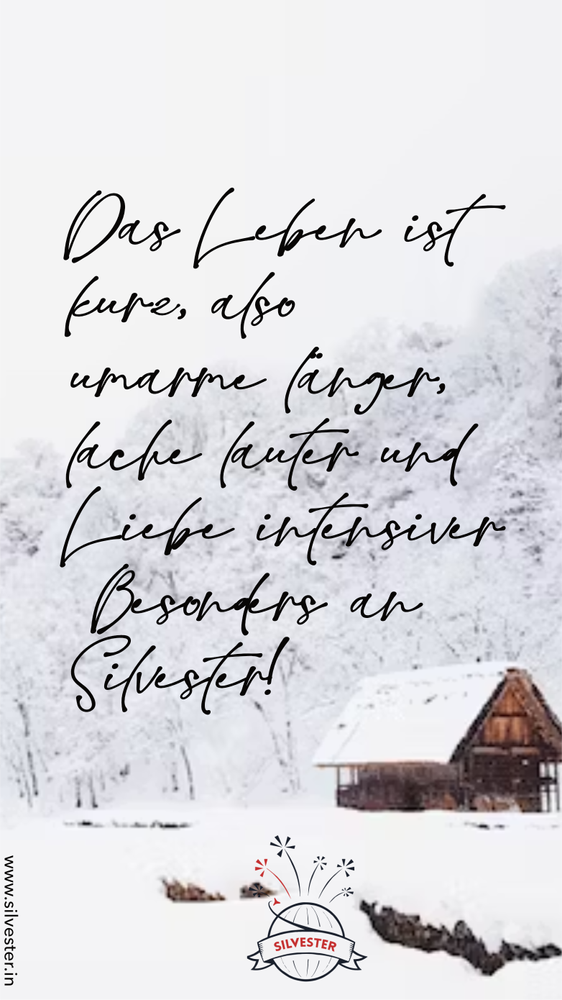 Das Leben ist
kurz, also
umarme länger,
lache lauter und
Liebe intensiver
Besonders an
Silvester!
SILVESTER
www.silvester.in